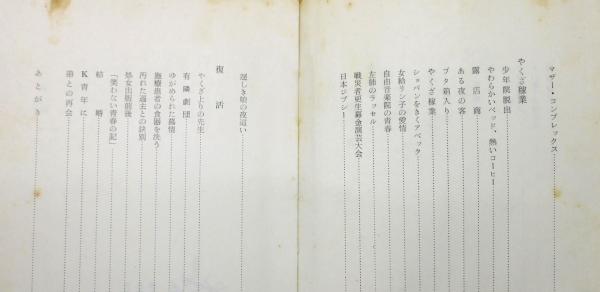 マザー・コンプレックス
やくざ稼業
少年院脱出
やわらかいベッド、熱いコーヒー
露店商
ある夜の客
ブタ箱入り
やくざ稼業
ショパンをきくアベック
女給リン子の愛情
自由音楽院の青春
左肺のラッセル
戦災者更生募金演芸大会
日本ジプシー
逞しき娘の夜這い
復活
やくざ上りの先生
有隣劇団
ゆがめられた慕情
施療患者の食器を洗う
汚れた過去との訣別
処女出版前後
「笑わない青春の記」
結婚
K青年に
弟との再会
あとがき